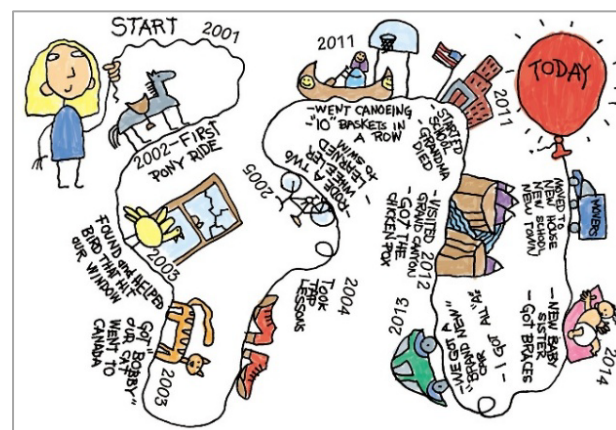 START
2001
2002-FIRST
PONY RIDE
2003
FOUND and HELPED
BIRD THAT HIT
OUR WINDOW
2003
GOT "BOBBY"
OUR CAT
WENT TO
CANADA
2004
TOOK
TAP
LESSONS
2005
-RODE A TWO
WHEELER
- LEARNED
TO SWIM
2011
-WENT CANOEING
-"10" BASKETS IN
A ROW
2011
-STARTED
SCHOOL
-GRANDMA
DIED
2012
-VISITED
GRAND CANYON
-GOT THE
CHICKEN POX
2013
-WE GOT A
"BRAND NEW"
CAR
- I GOT ALL "A's"
2014
-NEW BABY
SISTER
-GOT BRACES
MOVERS
MOVED TO
NEW HOUSE
NEW SCHOOL
NEW TOWN
TODAY